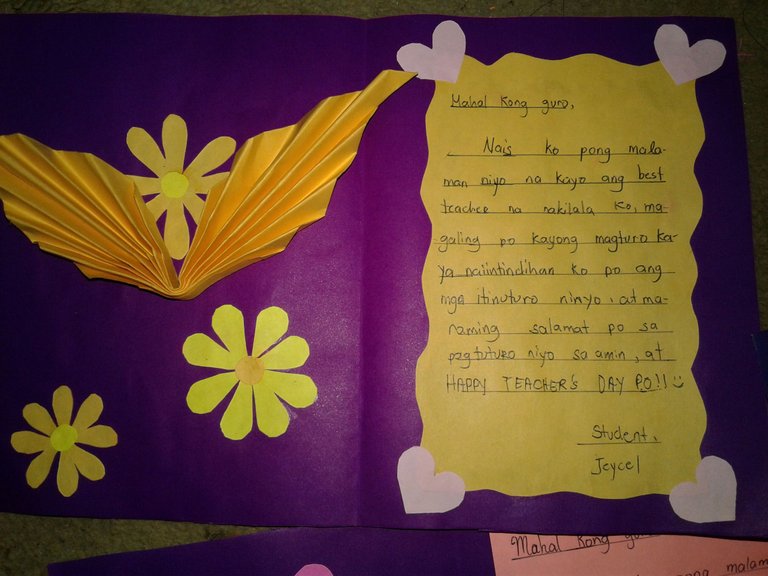 Mahal kong guro,
Nais ko pong mala-
man niyo na kayo ang best
teacher na nakilala ko, ma-
galing po kayong magturo ka-
ya naiintindihan ko po ang
mga itinuturo ninyo, at ma-
raming salamat po sa
pagtuturo niyo sa amin, at
HAPPY TEACHER'S DAY PO!!
Student,
Jeycel
Mahal kong
malam